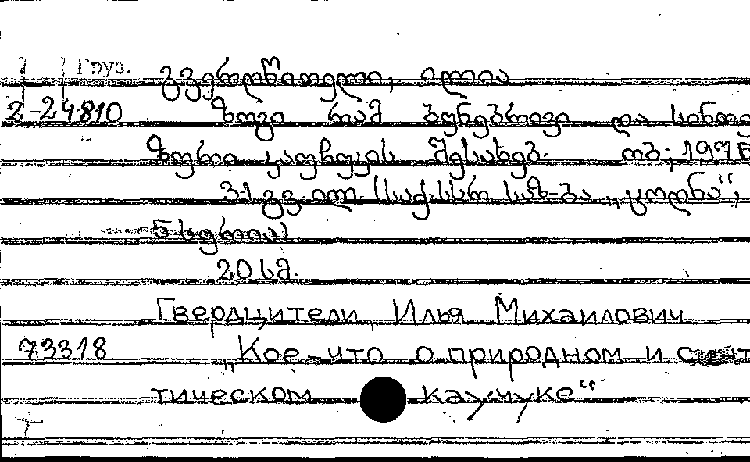 Груз. გვერდწითელი, ილია
2-24810 ზოგი რამ ბუნებრივი და სინთე
ზური კაუჩუკის შესახებ. თბ.; 197
31 გვ. ილ. (საქ. სსრ საზ-ბა „ცოდნა“,
5 სერია)
20 სმ.
Гвердцители, Илья Михаилович
73318 „Кое-что о природном и
тическом каучуке“